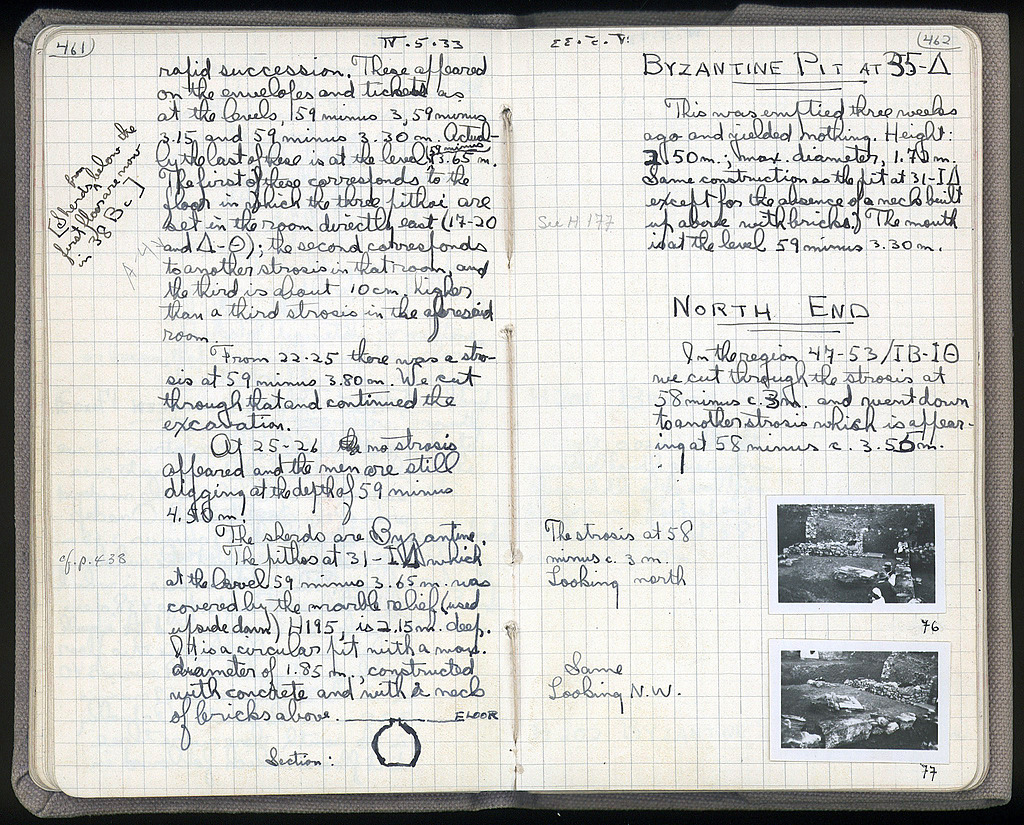 461
IV.5.33
rapid succession. These appeared
on the envelopes and tickets as
at the levels, 59 minus 3, 59 minus
3.15 and 59 minus 3.30 m. Actual-
ly the last of these is at the level 59 minus 3.65 m.
The first of these corresponds to the
floor in which the three pithoi are
set in the room directly east (17-20
and Δ-Θ); the second corresponds
to another strosis in that room, and
the third is about 10 cm. higher
than a third strosis in the aforesaid
room.
[Sherds from below the
first floor are now
in 38 B c]
From 22-25 there was a stro-
sis at 59 minus 3.80 m. We cut
through that and continued the
excavation.
At 25-26 no strosis
appeared and the men are still
digging at the depth of 59 minus
4.50 m.
The sherds are Byzantine.
cf. p. 438
The pithos at 31-IΔ which
at the level 59 minus 3.65 m. was
covered by the marble relief (used
upside down) H195, is 2.15 m. deep.
It is a circular pit with a max.
diameter of 1.85 m., constructed
with concrete and with a neck
of bricks above.
FLOOR
Section:
462
ΣΕ.
BYZANTINE PIT AT 35-Δ
This was emptied three weeks
ago and yielded nothing. Height:
2.50 m.; max. diameter, 1.75 m.
Same construction as the pit at 31-IΔ
except for the absence of a neck built
up above with bricks. The mouth
is at the level 59 minus 3.30 m.
See H 177
NORTH END
In the region 47-53/IB-IΘ
we cut through the strosis at
58 minus c. 3 m. and went down
to another strosis which is appear-
ing at 58 minus c. 3.55 m.
The strosis at 58
minus c. 3 m.
Looking north
76
Same
Looking N.W.
77